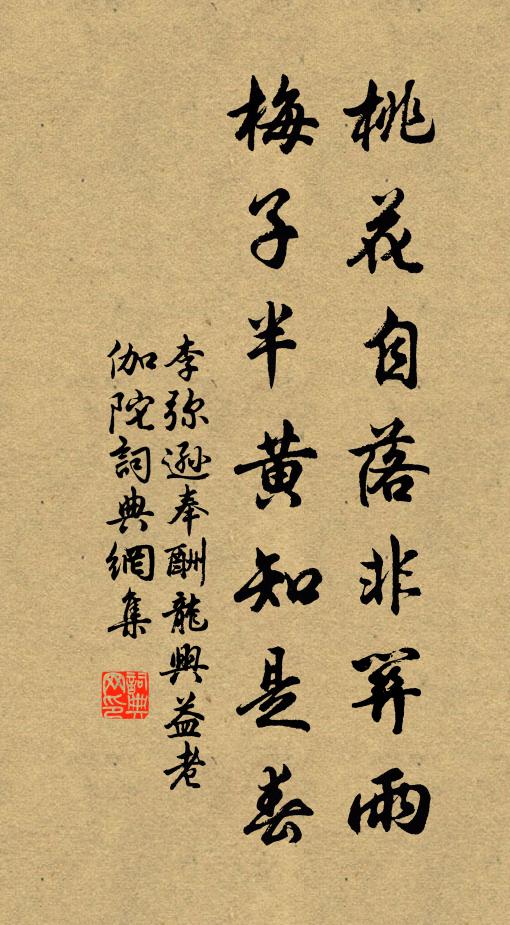 桃花自落非關雨
梅子半黃知是春
李弥遜奉酬龍興益老
伽陀詞典網集
詞典
网印